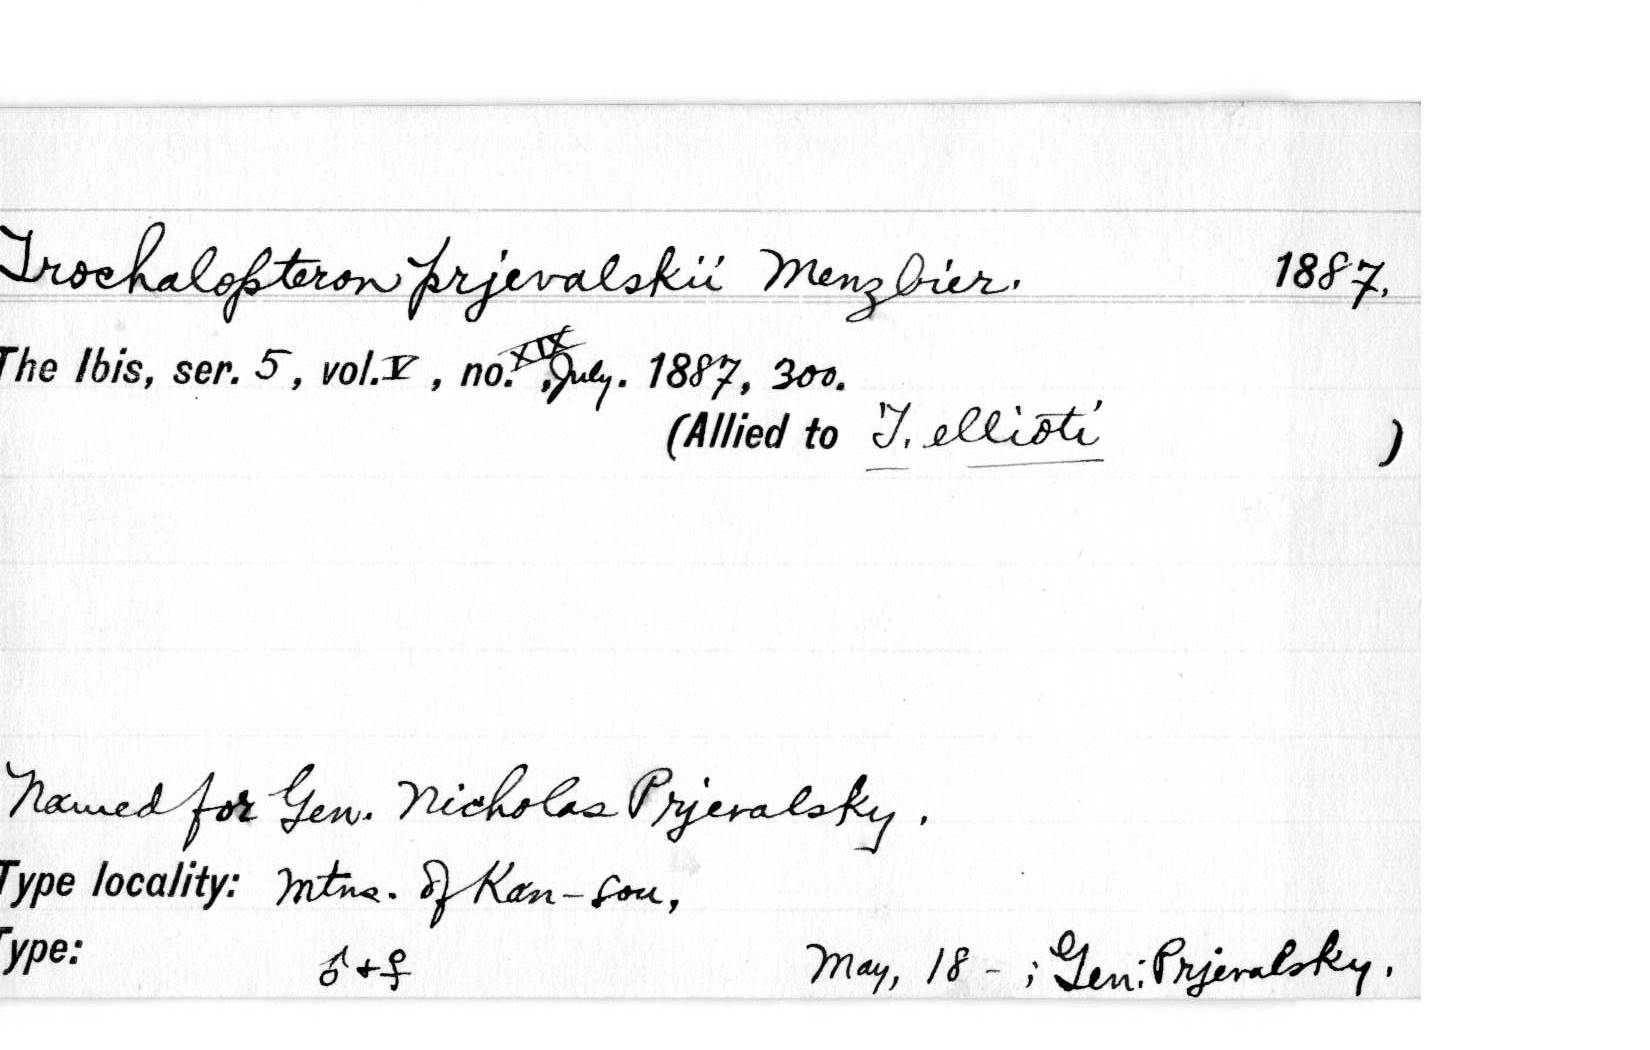 Trochalopteron prjevalskii Menzbier. 1887.
The Ibis, ser. 5, vol. V, no. XIX, July. 1887, 300.
(Allied to T. ellioti )
Named for Gen. Nicholas Prjevalsky.
Type locality: Mtns. of Kan-sou,
Type: ♂ + ♀ May, 18 - ; Gen: Prjevalsky.